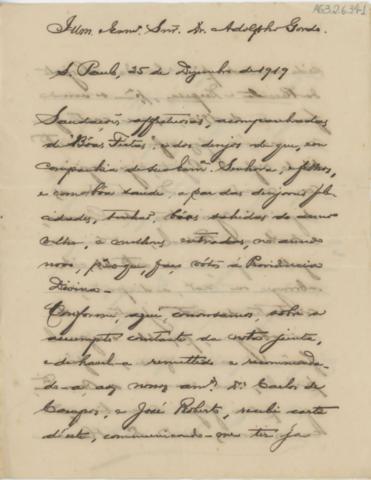 AG3.2.634-1
Illm. Exmo. Snr. Dr. Adolpho Gordo.
S. Paulo, 25 de Dezembro de 1919
Saudações affectuosas, acompanhadas
de "Bôas Festas" e dos desejos de que, em
companhia de sua Exma. Senhora, e filhos,
e com bôa saude, a par das desejaveis feli-
cidades, tenha bôas sahidas do anno
velho, e melhores entradas, no anno
novo, faço votos á Providencia
Divina.
Conforme, aqui, conversámos, sobre o
assumpto constante da nota junta,
e de havel-a remettido e recommenda-
do-a, aos nossos ams. Drs. Carlos de
Campos, e José Roberto, recebi carta
d'este, communicando-me ter já